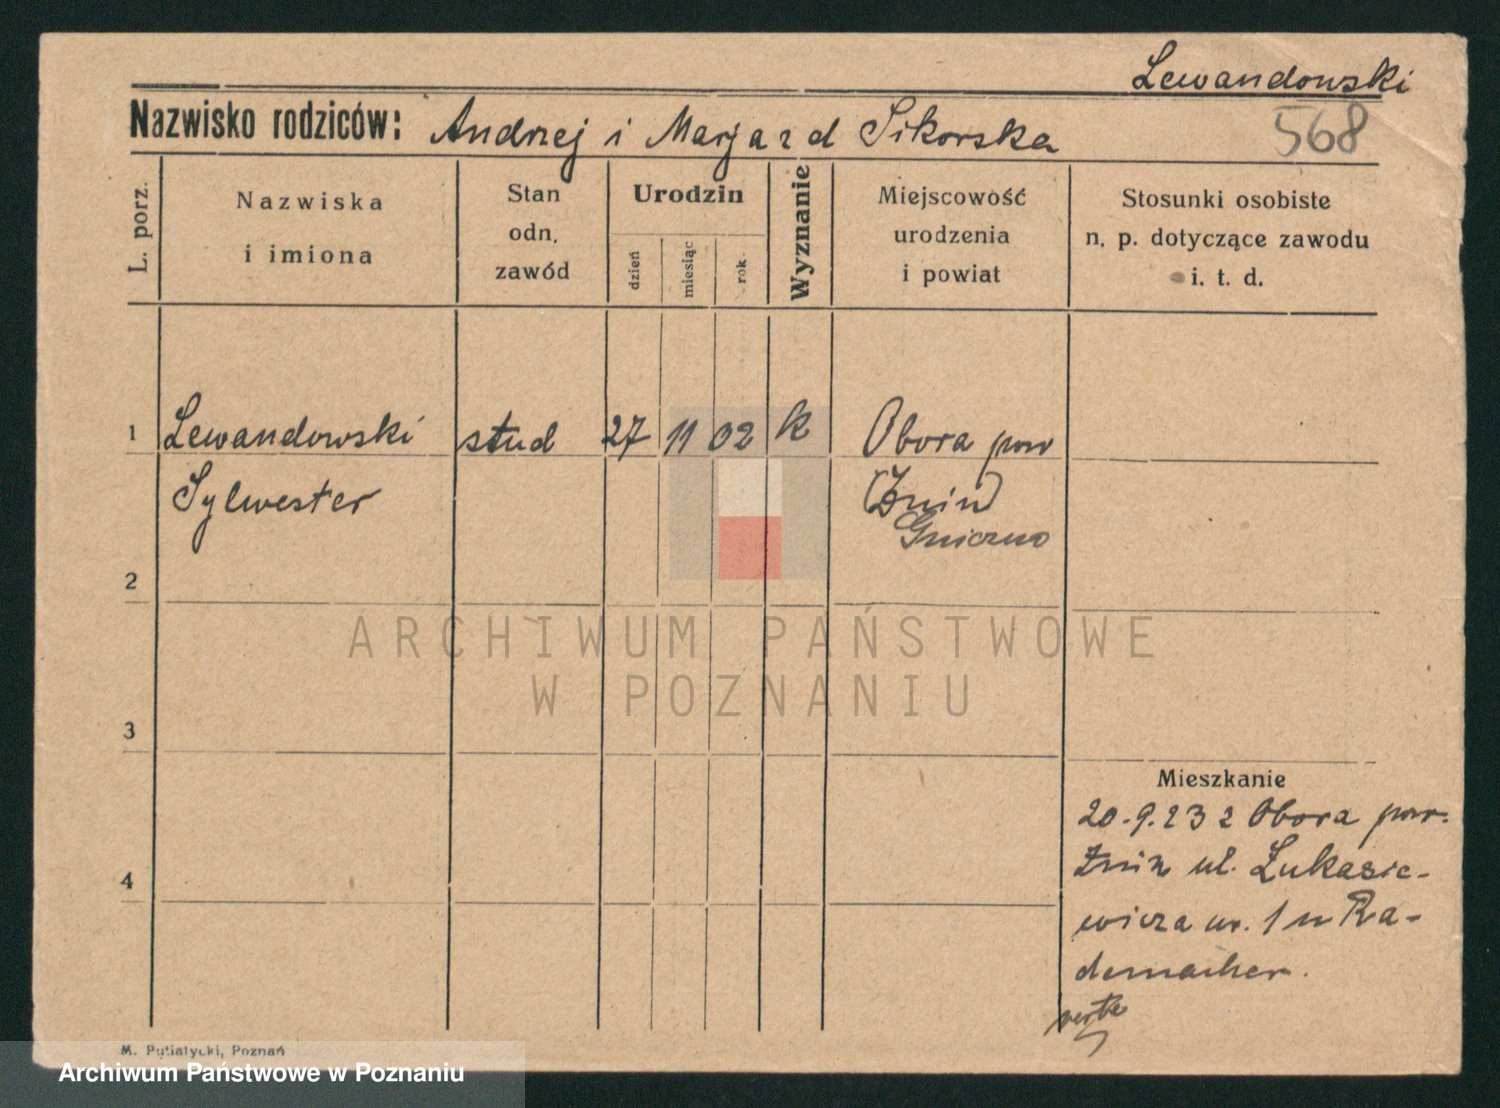 Lewandowski
568
Nazwisko rodziców: Andrzej i Marja z d Sikorska
L. porz.
Nazwiska
i imiona
Stan
odn.
zawód
Urodzin
dzień
miesiąc
rok
Wyznanie
Miejscowość
urodzenia
i powiat
Stosunki osobiste
n. p. dotyczące zawodu
i. t. d.
1 Lewandowski stud 27 11 02 k Obora pow
Sylwester (Żnin)
Gniezno
2
3
4
Mieszkanie
20.9.23 z Obora pow.
Żnin ul. Łukasie-
wicza nr. 1 u Ra-
demacher.
verte
M. Putiatycki, Poznań
ARCHIWUM PAŃSTWOWE
W POZNANIU
Archiwum Państwowe w Poznaniu